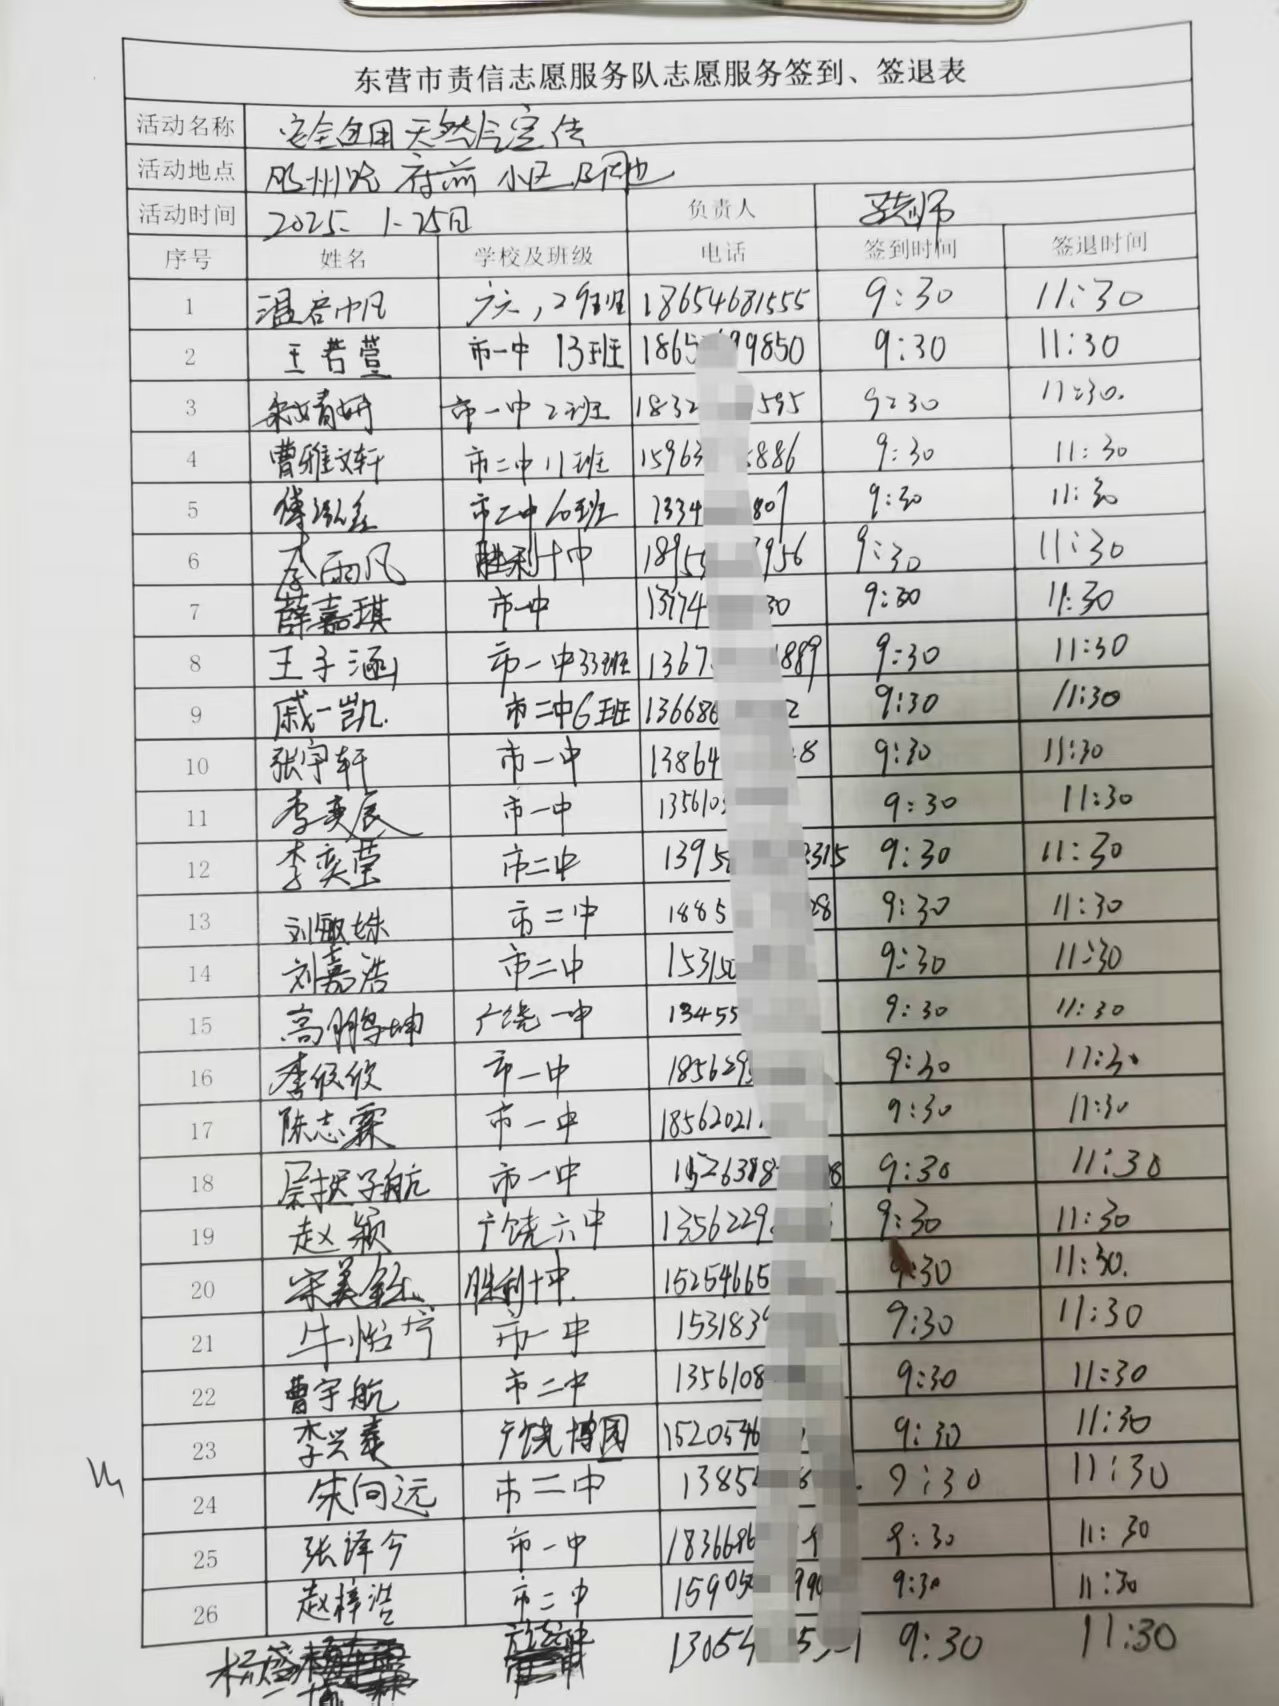 东营市责信志愿服务队志愿服务签到、签退表
活动名称 安全使用天然气宣传
活动地点 胶州路 府前 小区 园地
活动时间 2025. 1.25日 负责人 老师
序号 姓名 学校及班级 电话 签到时间 签退时间
1 温启帆 六,29班 18654681555 9:30 11:30
2 王若萱 市一中 13班 1865 99850 9:30 11:30
3 婧妍 市一中 22班 1832 595 9:30 11:30.
4 曹雅文轩 市二中 11班 15963 886 9:30 11:30
5 傅泓鑫 市二中 10班 1334 807 9:30 11:30
6 李雨风 胜利十中 1895 956 9:30 11:30
7 薛嘉琪 市一中 13974 30 9:30 11:30
8 王子涵 市一中33班 1367 889 9:30 11:30
9 戚一凯. 市二中6班 136686 2 9:30 11:30
10 张宇轩 市一中 13864 8 9:30 11:30
11 李奕辰 市一中 135610 9:30 11:30
12 李奕莹 市二中 1395 2315 9:30 11:30
13 刘敏姝 市二中 1885 28 9:30 11:30
14 刘嘉浩 市二中 153150 9:30 11:30
15 高鹏坤 广饶一中 13455 9:30 11:30
16 李欣欣 市一中 1856293 9:30 11:30
17 陈志霖 市一中 18562021 9:30 11:30
18 子航 市一中 1526388 8 9:30 11:30
19 赵颖 广饶六中 1356229 9:30 11:30
20 宋美钰 胜利十中. 15254665 9:30 11:30.
21 牛怡宁 市一中 153183 9:30 11:30
22 曹宇航 市二中 1356108 9:30 11:30
23 李兴泰 广饶博园 15205546 9:30 11:30
24 朱向远 市二中 1385 9:30 11:30
25 张译今 市一中 1836686 9:30 11:30
26 赵梓浩 市二中 15905 990 9:30 11:30
杨 13054 9:30 11:30